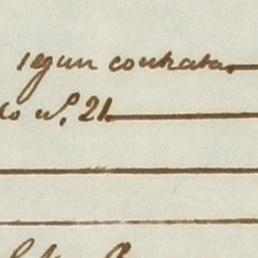 segun contrata
nº. 21